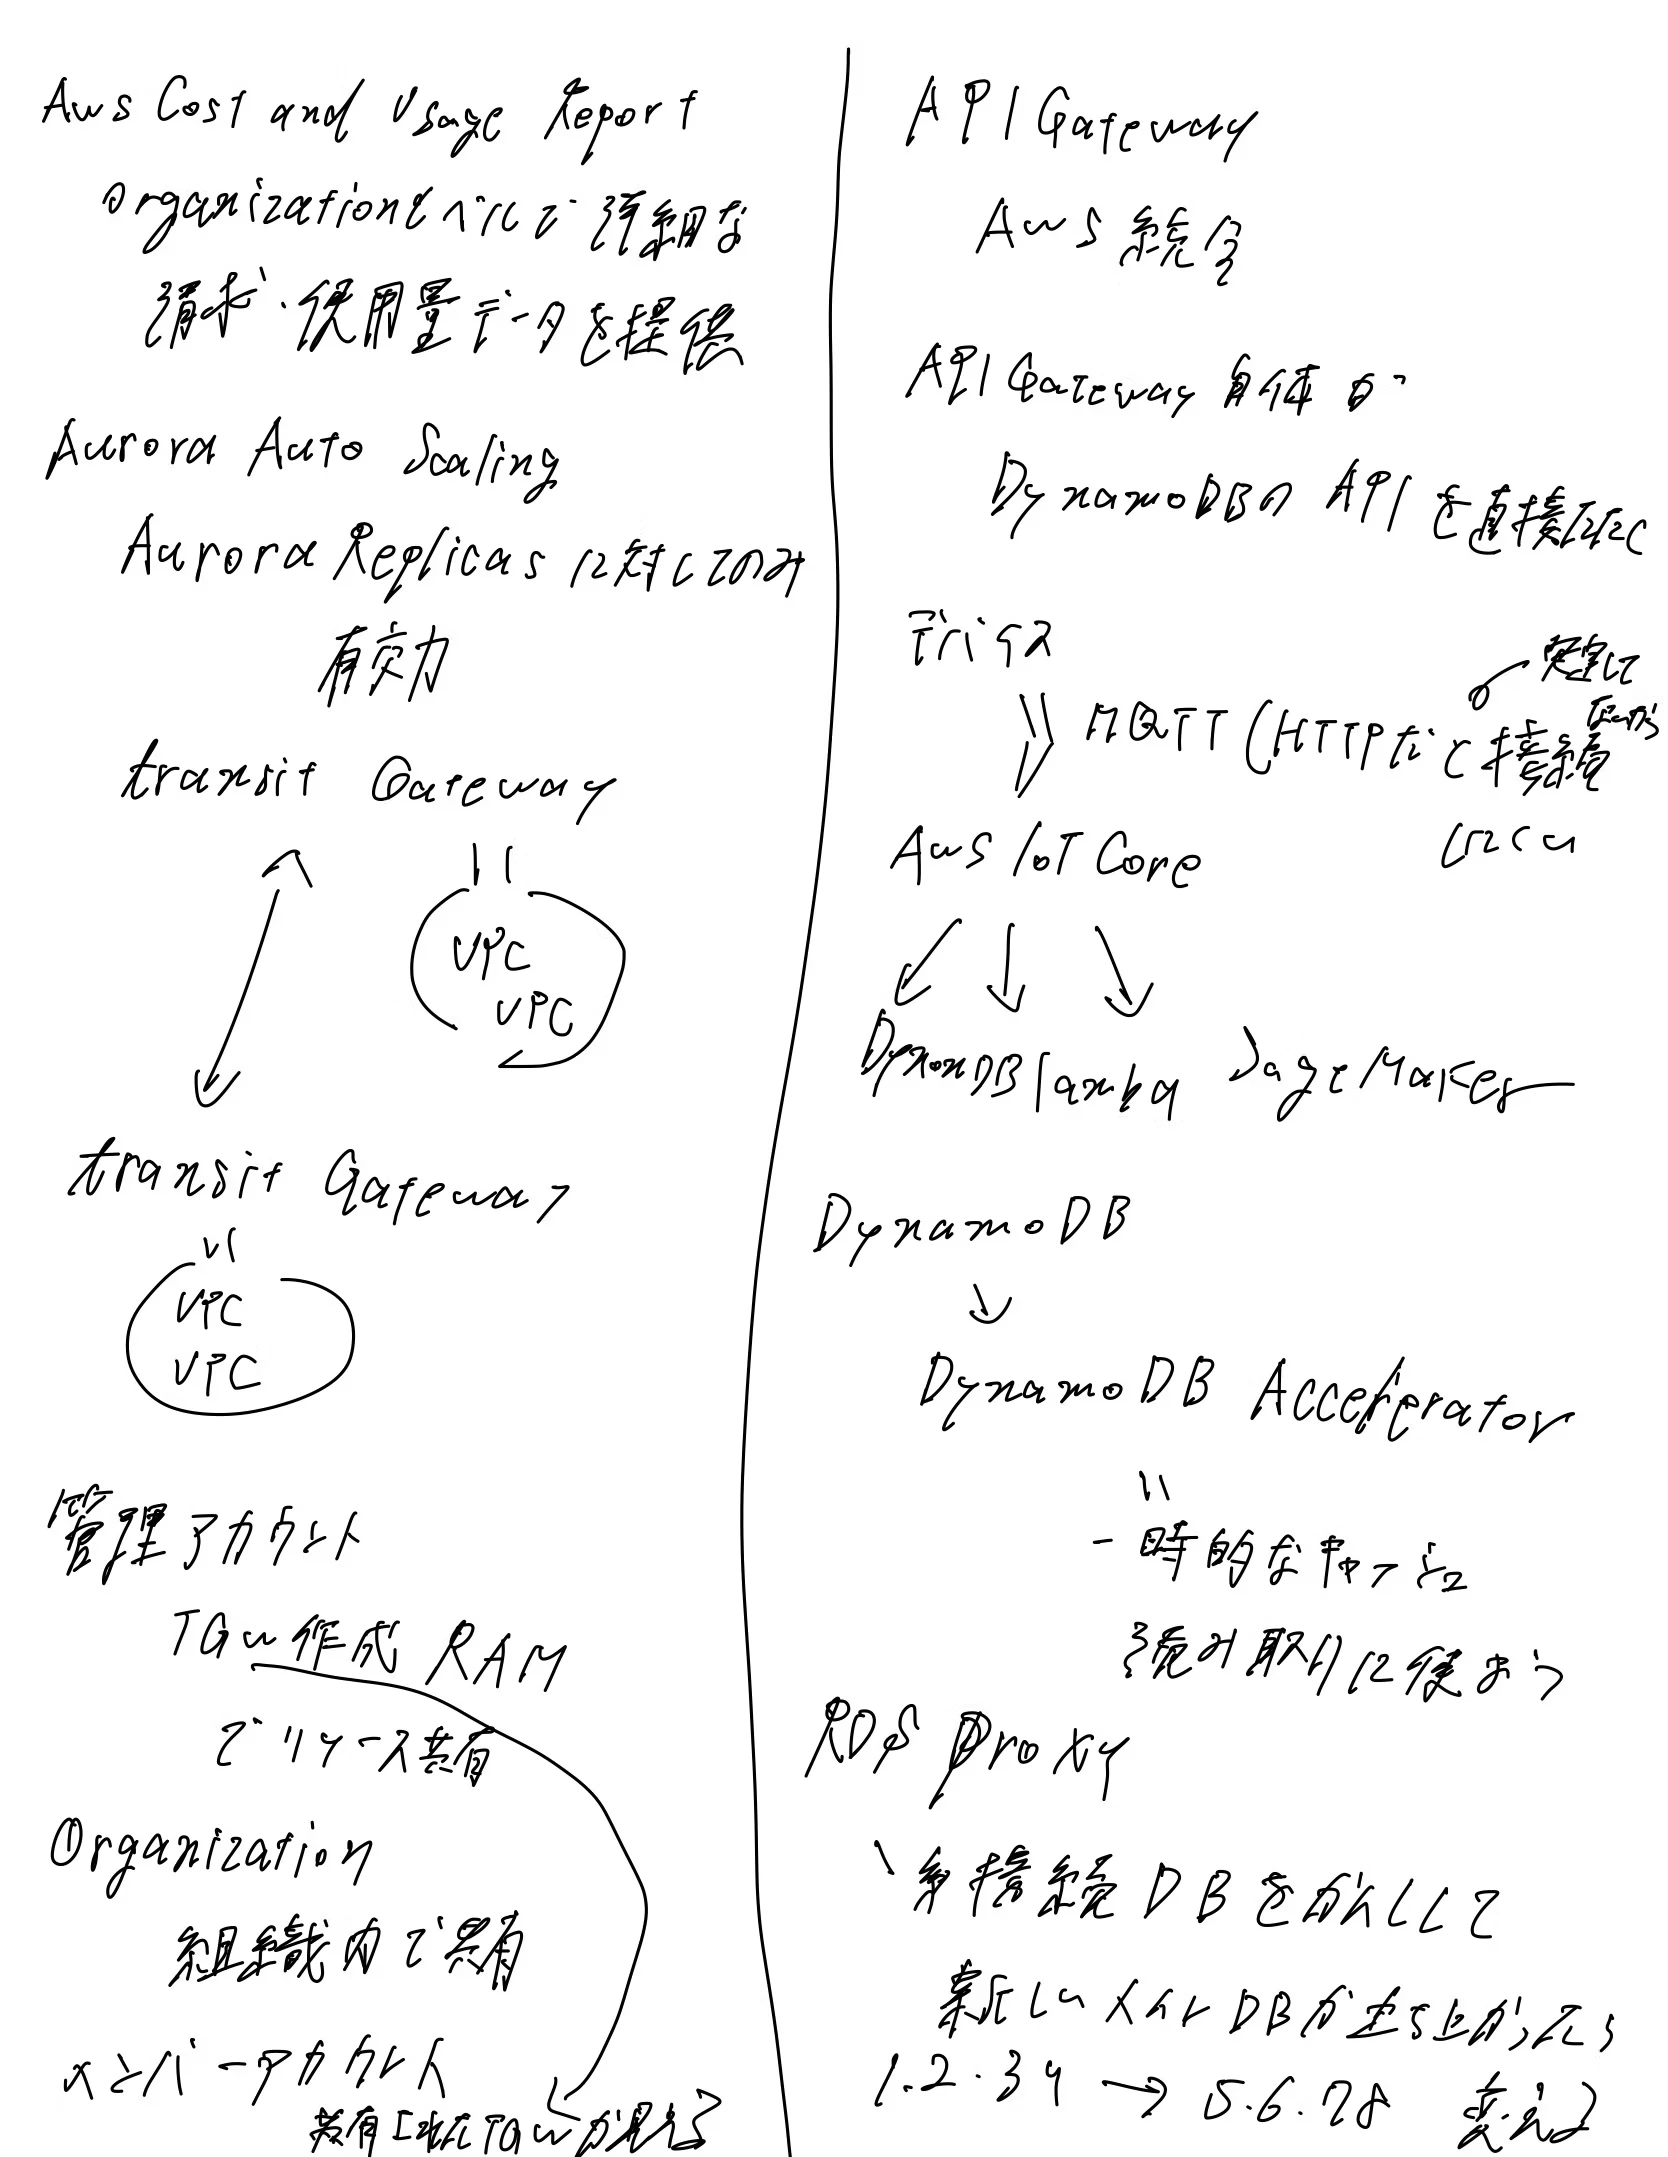 Aws Cost and Usage Report
Organizationレベルで詳細な
請求・使用量データを提供
Aurora Auto Scaling
Aurora Replicas に対してのみ
有効
transit Gateway
VPC
VPC
transit Gateway
VPC
VPC
管理アカウント
TGw作成 RAM
でリソース共有
Organization
組織内で共有
メンバーアカウント
共有されたTGwが見える
API Gateway
Aws 統合
API Gateway 自体が
DynamoDBの API を直接たたく
デバイス
MQTT (HTTPだと接続
安定して
ないから
しにくい
Aws IoT Core
DynamoDB lamba SageMaker
DynamoDB
DynamoDB Accelerator
一時的なキャッシュ
読み取りに使おう
RDS Proxy
接続 DB をかんしして
新しいメイン DB が立ち上がったら
1.2.34 → 5.6.78 変える